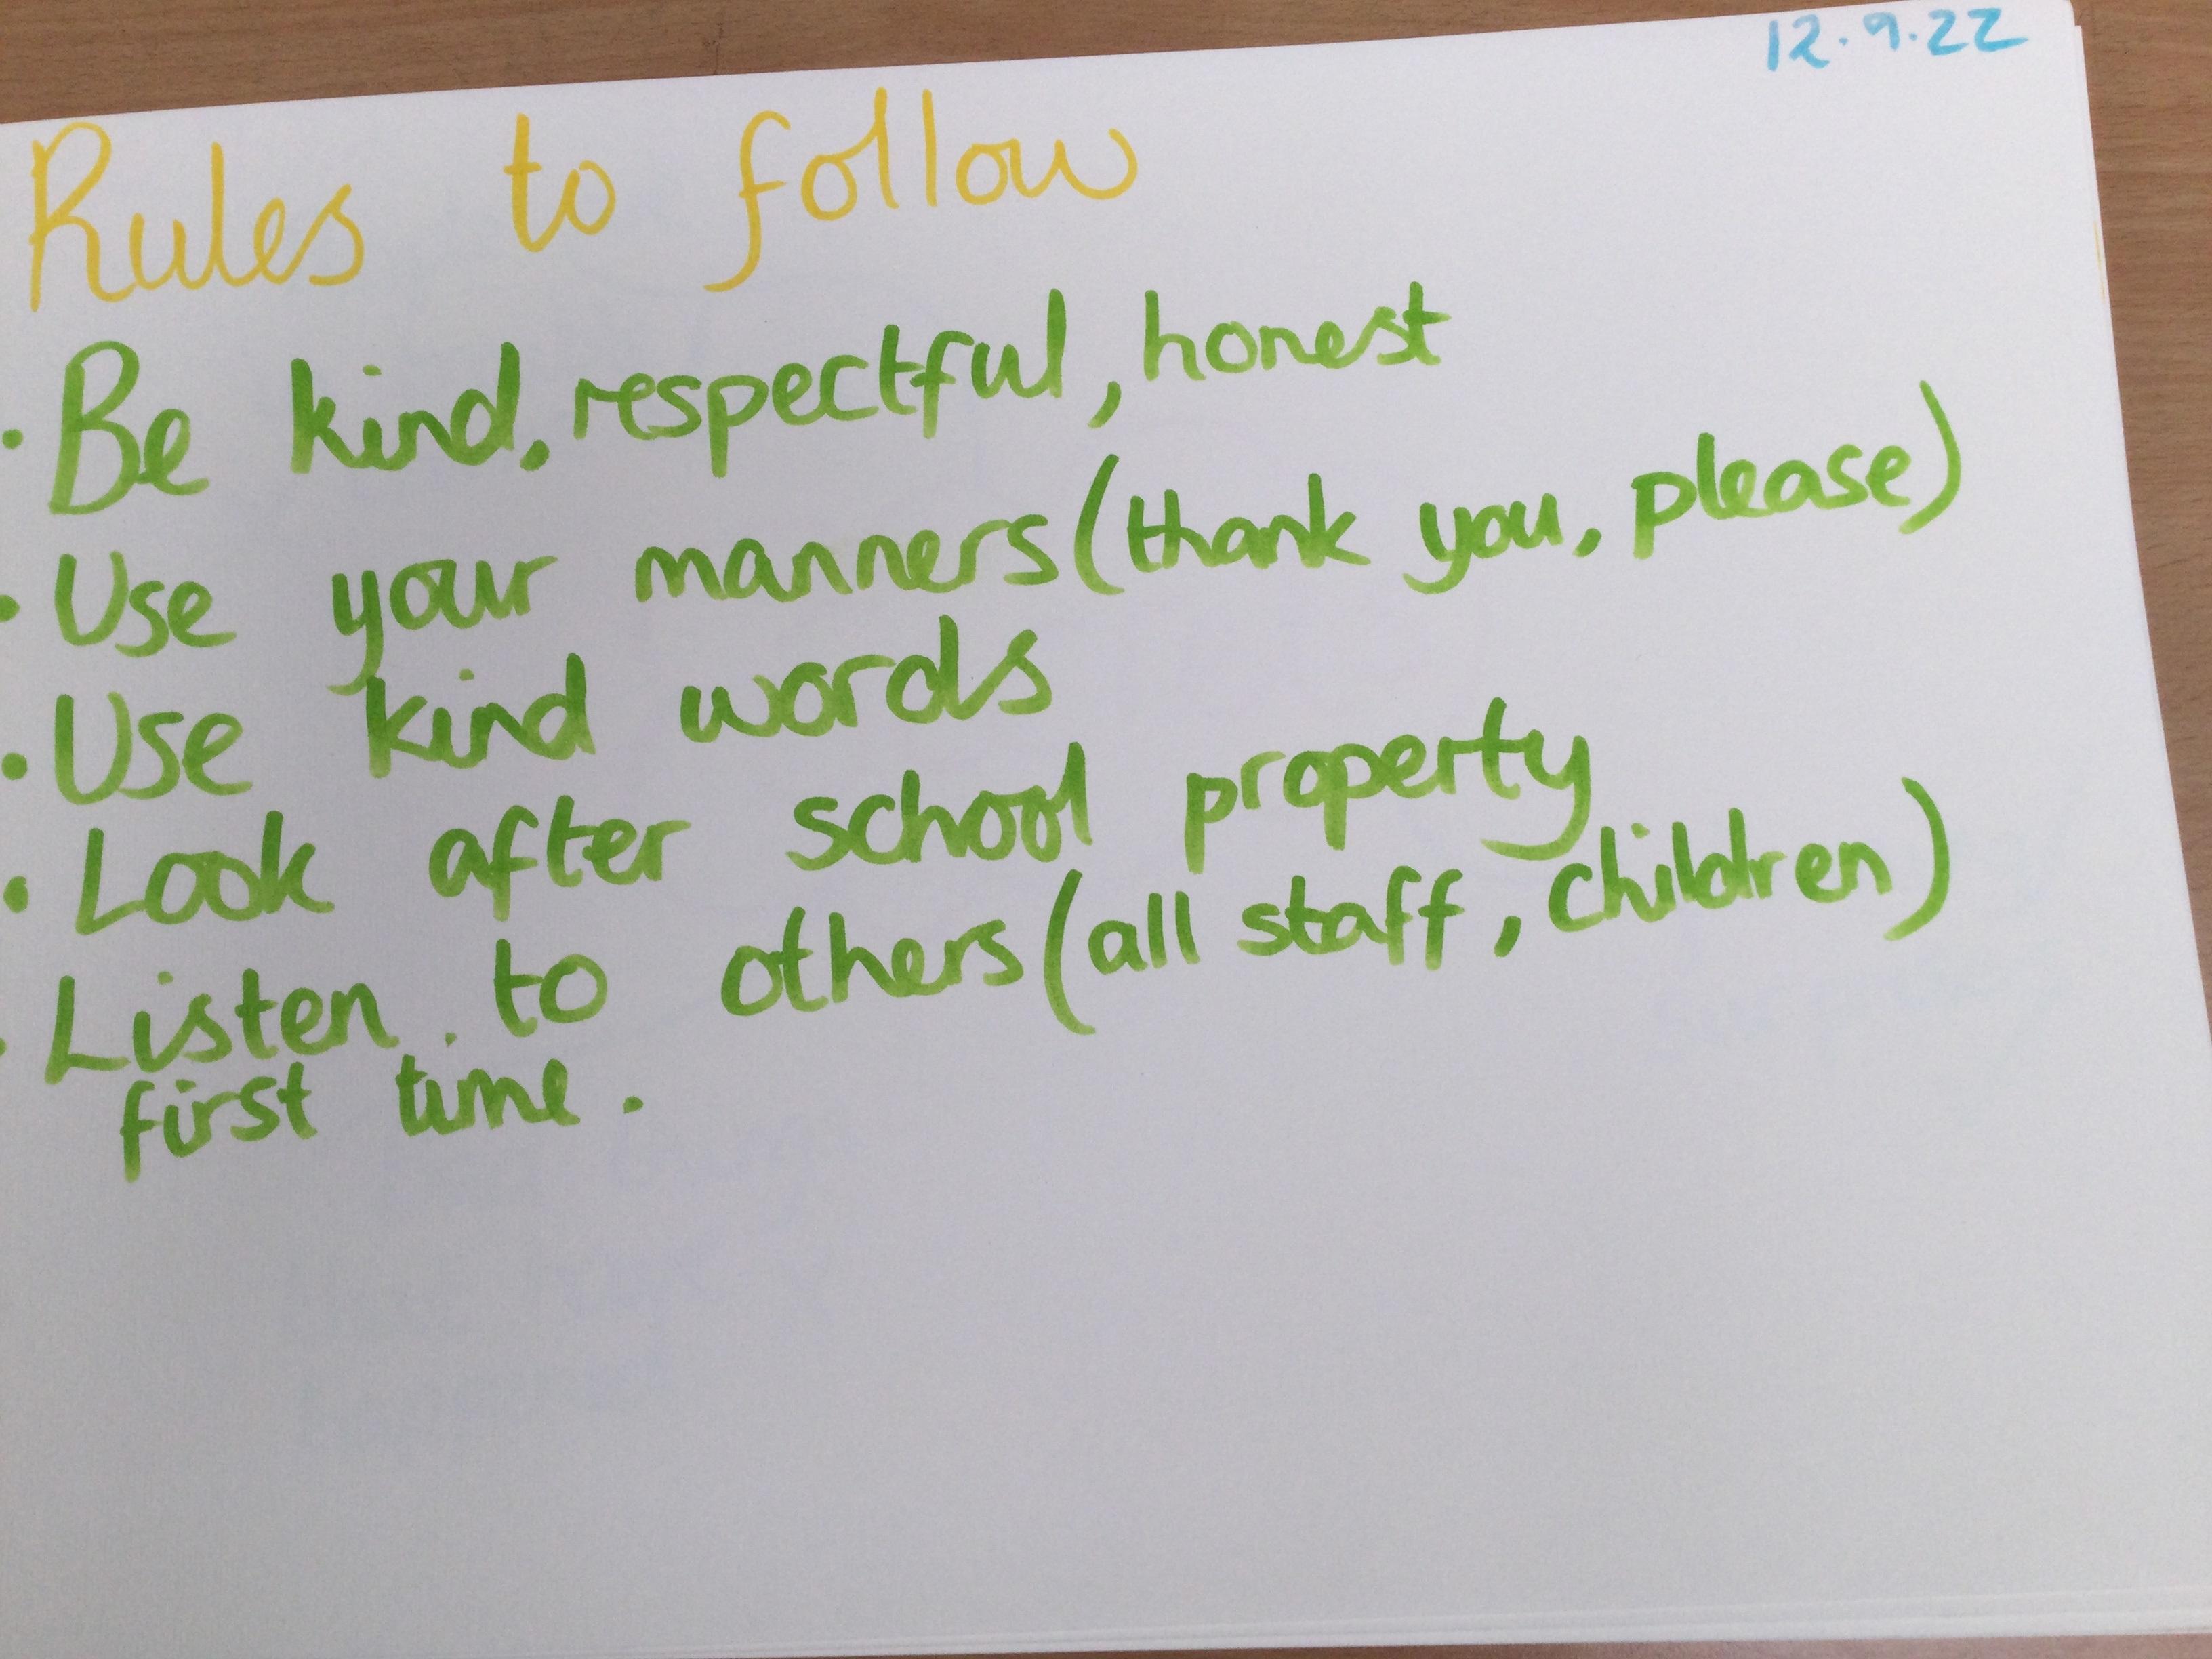 12.9.22
Rules to follow
• Be kind, respectful, honest
• Use your manners (thank you, please)
• Use kind words
• Look after school property
• Listen to others (all staff, children)
first time.